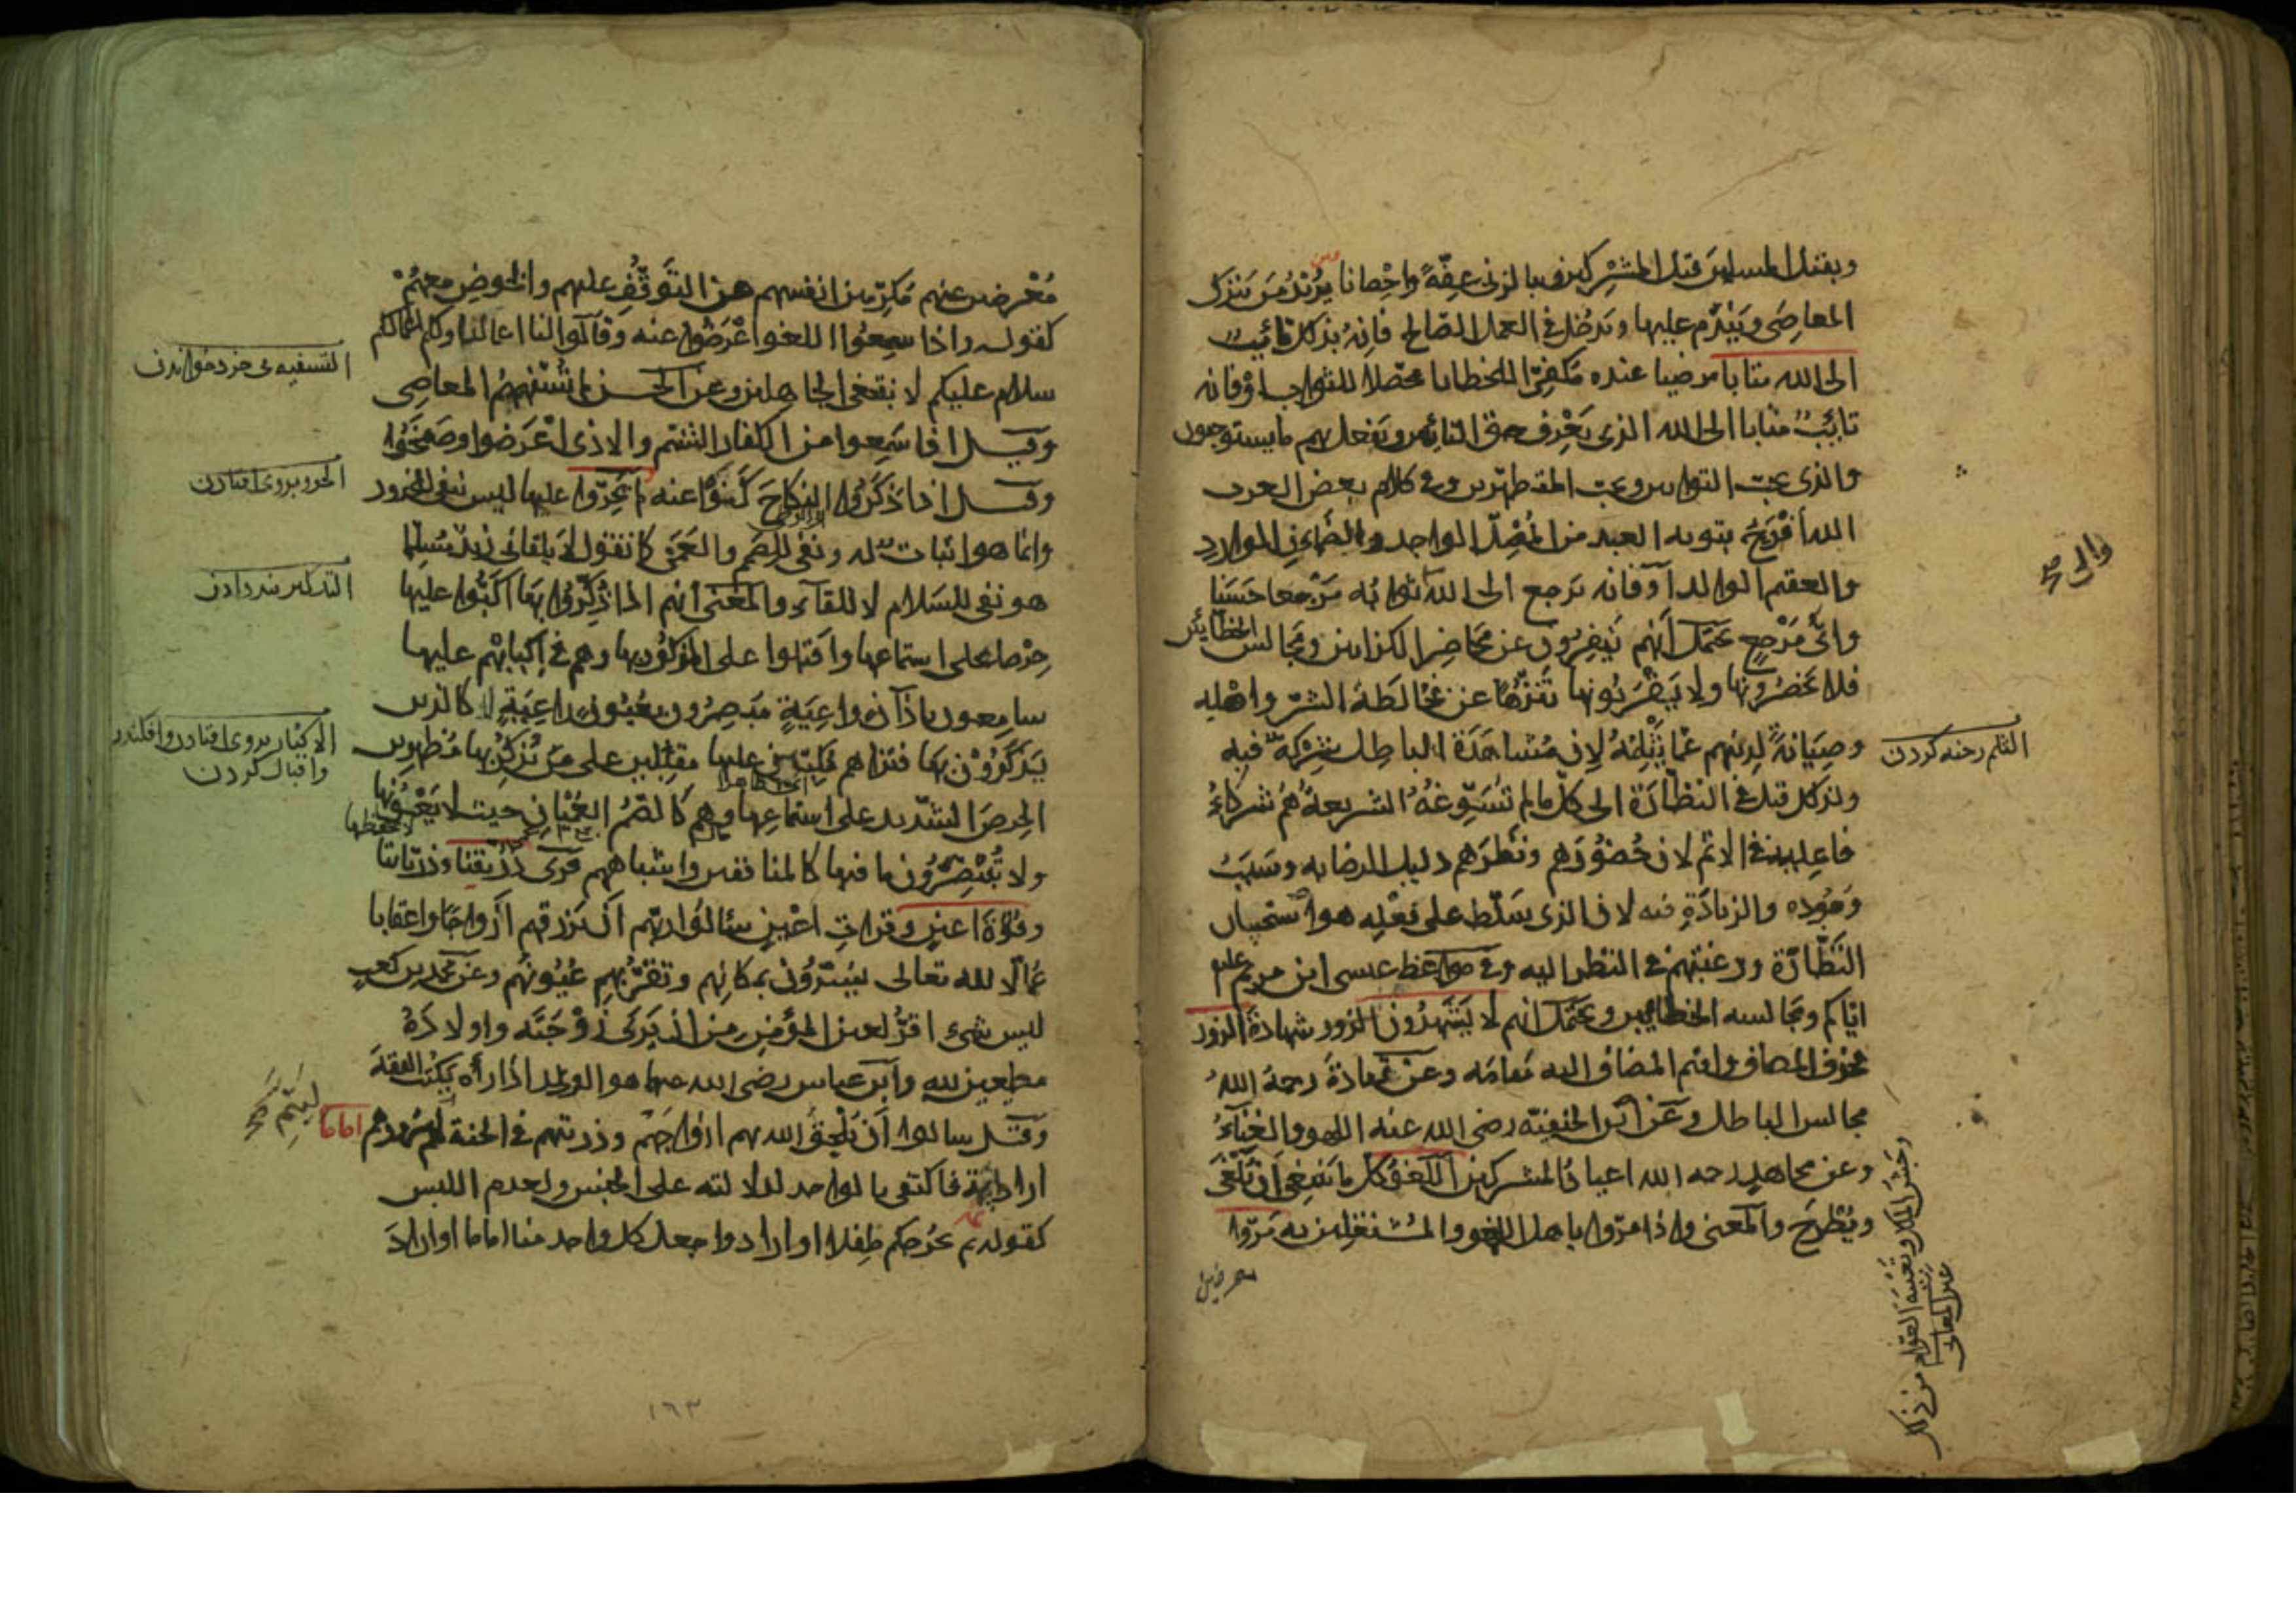 وبقتل المسلمين قتل المشركين وبالزنى عفّةً واحصانا يريد ومن يترك
المعاصى ويَنْدَم عليها ويدخل فى العمل الصّالح فانّه بذلك تائب
الى الله متابا مرضيا عنده مكفّرًا للخطايا محصّلا للثواب او فانه
تائبٌ متابا الى الله الذى يَعْرِف حقّ التائبين ويفعل بهم ما يستوجبون
والذى يحب التوابين ويحب المتطهّرين وفى كلام بعض العرب
الله أفْرَحُ بتوبه العبد من المُضِلّ الواجد والظمآنِ الوارد
والعقيم الوالد او فانه يرجع الى الله ثوابُه مَرْجعا حَسَنا
واىّ مَرْجع يحتمل أنهم يَنْفِرون عن مَحَاضِر الكذابين ومَجَالس الخطّائين
فلا يحضرونها ولا يَقْرَبُونها تنزّهًا عن مُخَالطة الشرّ واهله
وصِيَانةً لدينهم عمّا يَثْلِمُهُ لان مُشاهدة الباطل شركة فيه
ولذلك قيل فى النظّارة الى كلّ ما لم تُسَوِّغْهُ الشريعة هُم شركاءُ
فاعليه فى الاثم لان حُضُوْرَهم ونَظَرهم دليل الرضا به وسَبَبُ
وجُوْده والزيادَةِ فيه لان الذى سَلّط على فِعْلِه هو استحسان
النَّظّارَة ورغبتهم فى النظر اليه وفى مواعظ عيسى ابن مريم علم
اياكم ومجالسة الخطّائين ويحتمل انهم لا يَشْهَدُون الزور شهادةَ الزور
فحذف المضاف واقيم المضاف اليه مَقامَه وعن قتادة رحمهُ اللهُ
مجالس الباطل وعَن ابن الحنفيّة رضى الله عنه اللهو والغناءُ
وعن مجاهد رحمه الله اعياد المشركين اللَّغْوُ كل ما يَنْبغى اَن يُلْغَى
ويُطْرَح والمعنى واذا مرّوا باهل اللغو والمُشْتغلين به مَرّوا
معرضين
والى صح
الثلم رخنه كردن
مُعْرضين عنهم مُكرّمين انفسهم عن التَّوقُّفِ عليهم والخوض معهُمْ
كقوله واذا سمِعُوا اللغو اعْرَضُوا عنه وقالوا لنا اعمالنا ولكم اعمالكم
سلام عليكم لا نبتغى الجاهلين وعن الحسن لم تُسَفِّهْهُمُ المعاصى
وقيل اذا سَمِعوا من الكفار الشتم والاذى اَعْرَضوا وصَفَحُوا
وقيل اذا ذكَرُوا النكاحَ كَنَوْا عنه لم يَخِرّوا عليها ليس بنفى للخرور
وانما هو اثبات له ونفى للصّمم والعَمَى كما تقول لا يلقانى زيد مُسَلِّما
هو نفى للسَلام لا للقاء والمعنى أنهم اذا ذُكِّرُوا بها اكَبُّوا عليها
حِرْصا على استماعها واقبلوا على المذكِّر بها وهم فى إكبابهم عليها
سامعون باذآن واعِيَةٍ مُبْصِرُون بعُيُونٍ راعِيَةٍ لا كالذين
يُذكَّرُوْن بها فتراهم مُكِبّين عليها مقبلين على من يُذكِّرُ بها مُظهرين
الحِرصَ الشديد على استماعها وهم كالصُّمّ العُمْيَانِ حيث لا يَعُوْنَها
ولا يَتَبَصَّرُون ما فيها كالمنافقين واشباههم قرى ذُرّيتنا وذرّياتنا
وقُرّةَ اعينٍ وقرات اعْيُنٍ سألوا ربّهم ان يرزقهم ازواجًا واعقابا
عُمّالا لله تعالى يُسَرّوْن بمكانِهم وتقرّ بهم عُيُونُهُم وعن محمد بن كعب
ليس شىء اقرّ لعين المؤمن من ان يَرَى زَوْجَتَه واولادَهُ
مطيعين لله وابن عباس رضى الله عنهما هو الولد اذا رأه يكتب الفقهَ
وقيل سالوا أن يُلْحِقَ الله بهم ازواجَهُم وذريتهم فى الجنة ليتم سرورهم اماما
اراد ائمة فاكتفى بالواحد لدلالته على الجنس ولعدم اللبس
كقوله ثم يُخْرجكم طِفلا او ارادوا اجعل كل واحد منا اماما او اراد
التسفيه بى خرد خواندن
الخرور بروى افتادن
التذكير پند دادن
الاكباب بروى افتادن وافكندن
واقبال كردن
ليتم صح
١٦٣